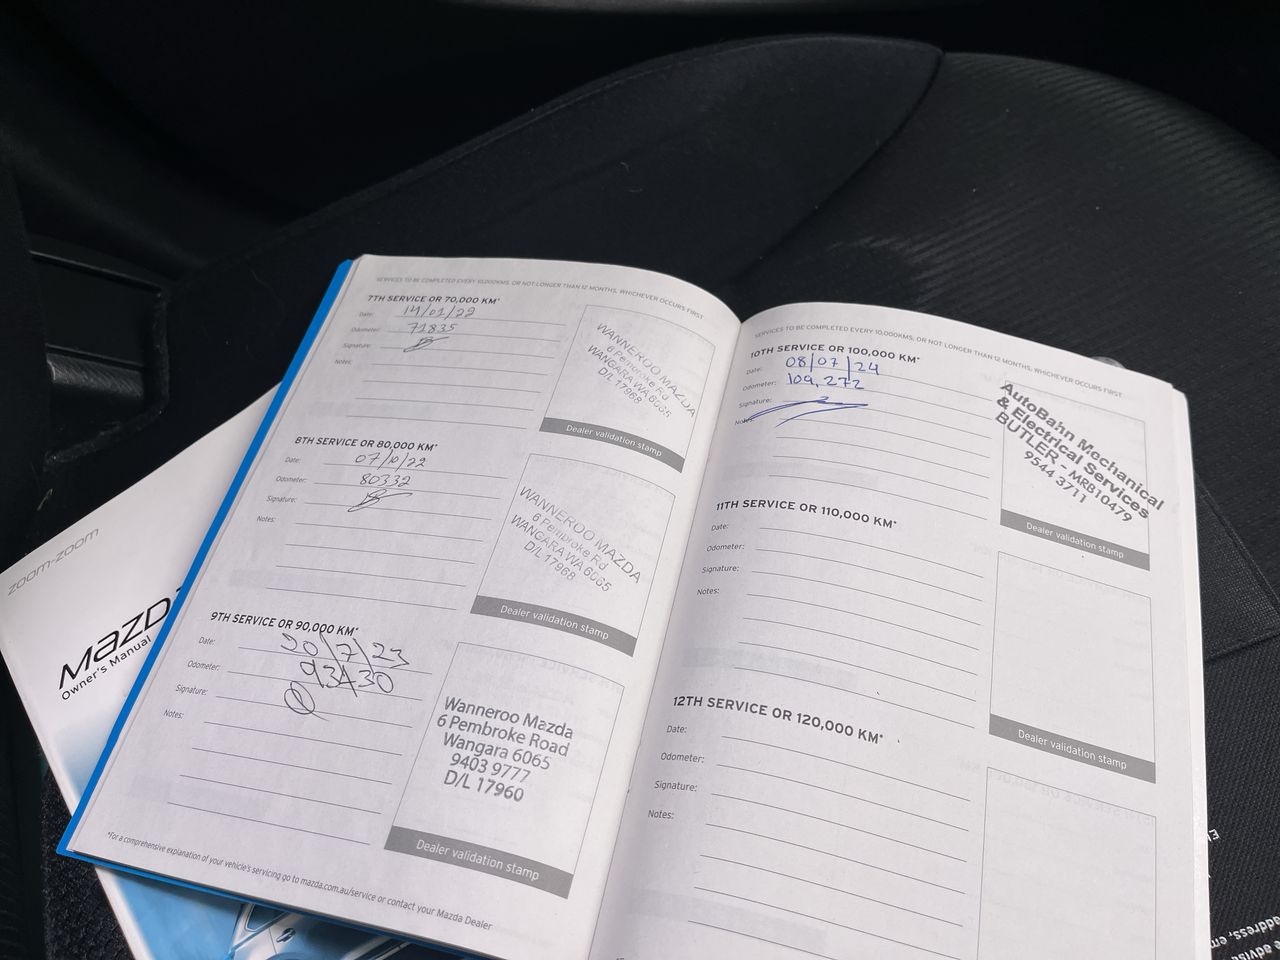 SERVICES TO BE COMPLETED EVERY 10,000KMS, OR NOT LONGER THAN 12 MONTHS, WHICHEVER OCCURS FIRST
7TH SERVICE OR 70,000 KM*
Date: 14/01/22
Odometer: 71835
Signature:
Notes:
WANNEROO MAZDA
6 Pembroke Rd
WANGARA WA 6065
D/L 17968
Dealer validation stamp
8TH SERVICE OR 80,000 KM*
Date: 07/10/22
Odometer: 80332
Signature:
Notes:
WANNEROO MAZDA
6 Pembroke Rd
WANGARA WA 6065
D/L 17968
Dealer validation stamp
9TH SERVICE OR 90,000 KM*
Date: 20/7/23
Odometer: 93430
Signature:
Notes:
Wanneroo Mazda
6 Pembroke Road
Wangara 6065
9403 9777
D/L 17960
Dealer validation stamp
*For a comprehensive explanation of your vehicle's servicing go to mazda.com.au/service or contact your Mazda Dealer
SERVICES TO BE COMPLETED EVERY 10,000KMS, OR NOT LONGER THAN 12 MONTHS, WHICHEVER OCCURS FIRST
10TH SERVICE OR 100,000 KM*
Date: 08/07/24
Odometer: 109,272
Signature:
Notes:
AutoBahn Mechanical
& Electrical Services
BUTLER - MRB10479
9544 3711
Dealer validation stamp
11TH SERVICE OR 110,000 KM*
Date:
Odometer:
Signature:
Notes:
Dealer validation stamp
12TH SERVICE OR 120,000 KM*
Date:
Odometer:
Signature:
Notes:
zoom-zoom
mazda
Owner's Manual